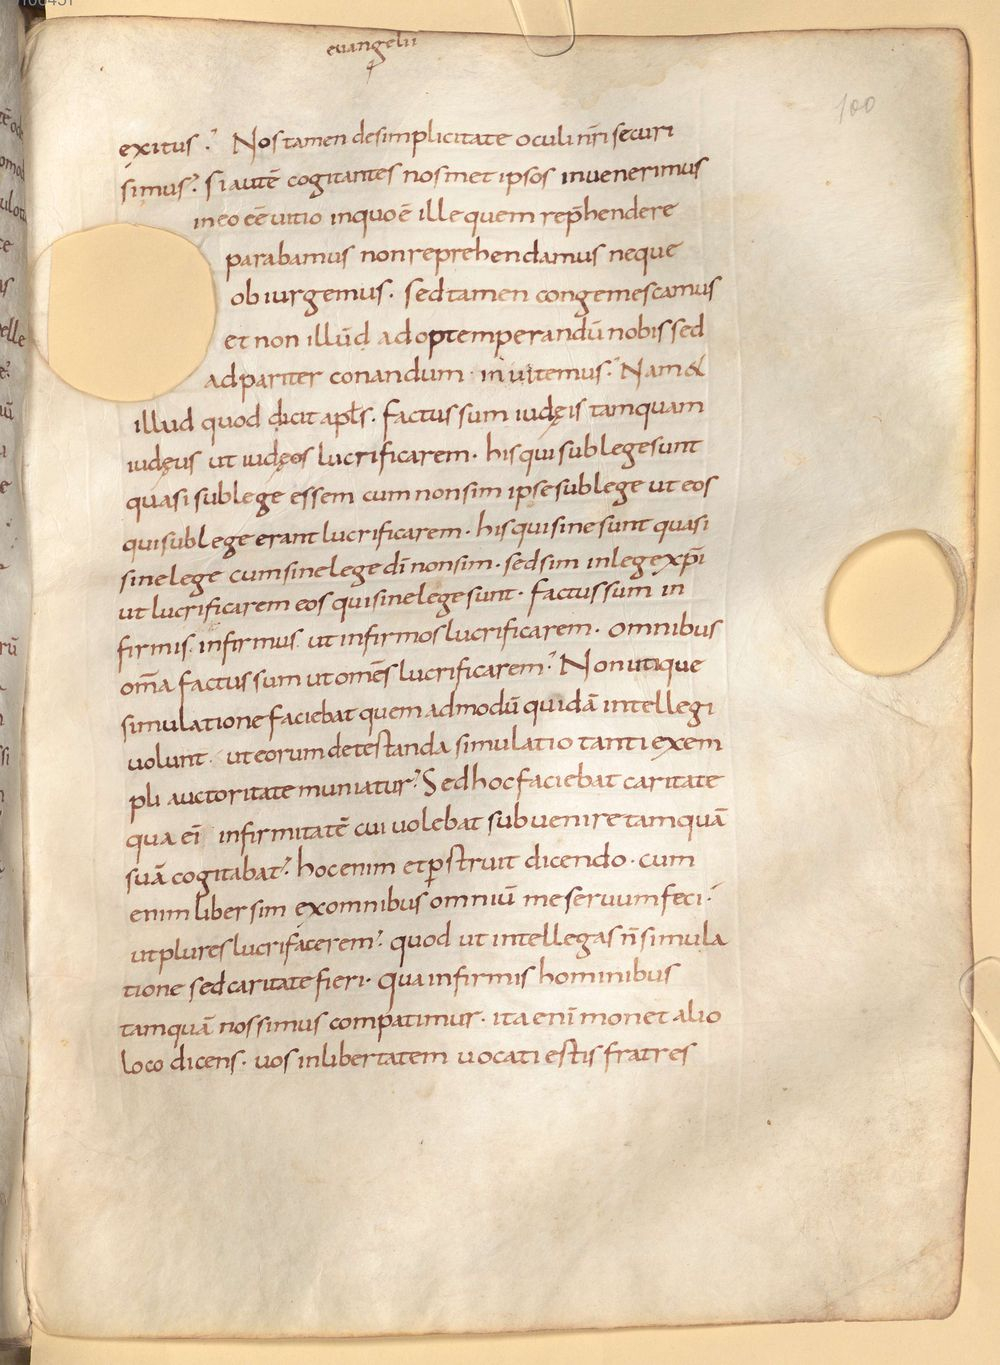 evangelii
100
exitus? Nos tamen desimplicitate oculi nr̄i securi
simus? si autē cogitantes nosmet ipsos invenerimus
in eo eē uitio inquo ē ille quem rep̄hendere
parabamus nonreprehendamus neque
obiurgemus. sed tamen congemescamus
et non illūd ad optemperandū nobis sed
ad pariter conandum inuitemus? Nam &
illud quod dicit apl̄s. factus sum iudęis tamquam
iudęus ut iudęos lucrificarem. his qui sub lege sunt
quasi sub lege essem cum non sim ipse sub lege ut eos
qui sub lege erant lucrificarem. his qui sine sunt quasi
sine lege cum sine lege dī non sim. sed sim in lege xp̄i
ut lucrificarem eos qui sine lege sunt. factus sum in
firmis. infirmus ut infirmos lucrificarem. omnibus
om̄a factus sum ut omēs lucrificarem? Non utique
simulatione faciebat quem admodū quidā intellegi
uolunt. ut eorum detestanda simulatio tanti exem
pli auctoritate muniatur? Sed hoc faciebat caritate
qua eī infirmitatē cui uolebat subuenire tamquā
suā cogitabat? hoc enim et p̱struit dicendo. cum
enim liber sim ex omnibus omniū me seruum feci.
ut plures lucrifacerem? quod ut intellegas n̄ simula
tione sed caritate fieri. qua infirmis hominibus
tamquā nos simus compatimur. ita enī monet alio
loco dicens. uos in libertatem uocati estis fratres